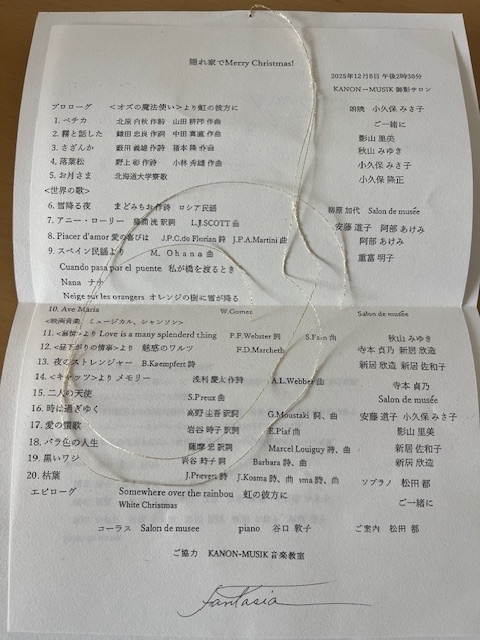 隠れ家でMerry Christmas!
2025年12月8日 午後2時30分
KANON−MUSIK 御影サロン
プロローグ ＜オズの魔法使い＞より虹の彼方に 朗読 小久保 みさ子
1. ペチカ 北原 白秋 作詩 山田 耕筰 作曲 ご一緒に
2. 霧と話した 鎌田 忠良 作詞 中田 喜直 作曲 影山 里美
3. さざんか 薮田 義雄 作詩 作曲 秋山 みゆき
4. 落葉松 野上 彰 作詩 小林 秀雄 作曲 小久保 みさ子
5. お月さま 北海道大学寮歌 小久保 隆正
＜世界の歌＞
6. 雪降る夜 まどみちお 作詩 ロシア民謡 柳原 加代 Salon de musée
7. アニー・ローリー 訳詞 L.J.SCOTT 曲 安藤 道子 阿部 あけみ
8. Piacer d'amor 愛の喜びは J.P.C.do Florian 詩 J.P.A.Martini 曲 阿部 あけみ
9. スペイン民謡より M. Ohana 曲 重富 明子
Cuando pasa por el puente 私が橋を渡るとき
Nana ナナ
Neige sur les orangers オレンジの樹に雪が降る
10. Ave Maria W.Gomez Salon de musée
＜映画音楽、ミュージカル、シャンソン＞
11. ＜慕情＞より Love is a many splenderd thing P.F.Webster 詞 S.Fain 曲 秋山 みゆき
12. ＜昼下がりの情事＞より 魅惑のワルツ F.D.Marcheth 寺本 貞乃 新居 欣造
13. 夜のストレンジャー B.Kaempfert 詩 新居 欣造 新居 佐和子
14. ＜キャッツ＞より メモリー 浅利 慶太 作詩 A.L.Webber 曲 寺本 貞乃
15. 二人の天使 S.Preux 曲 Salon de musée
16. 時は過ぎゆく 高野 圭吾 訳詞 G.Moustaki 詞、曲 安藤 道子 小久保 みさ子
17. 愛の讃歌 岩谷 時子 訳詞 E.Piaf 曲 影山 里美
18. バラ色の人生 薩摩 忠 訳詞 Marcel Louiguy 詩、曲 新居 佐和子
19. 黒いワシ 岩谷 時子 訳詞 Barbara 詩、曲 新居 欣造
20. 枯葉 J.Prevert 詩 J.Kosma 詩、曲 詩、曲 ソプラノ 松田 都
エピローグ Somewhere over the rainbou 虹の彼方に ご一緒に
White Christmas
コーラス Salon de musee piano 谷口 敦子 ご案内 松田 都
ご協力 KANON-MUSIK 音楽教室
Fantasia